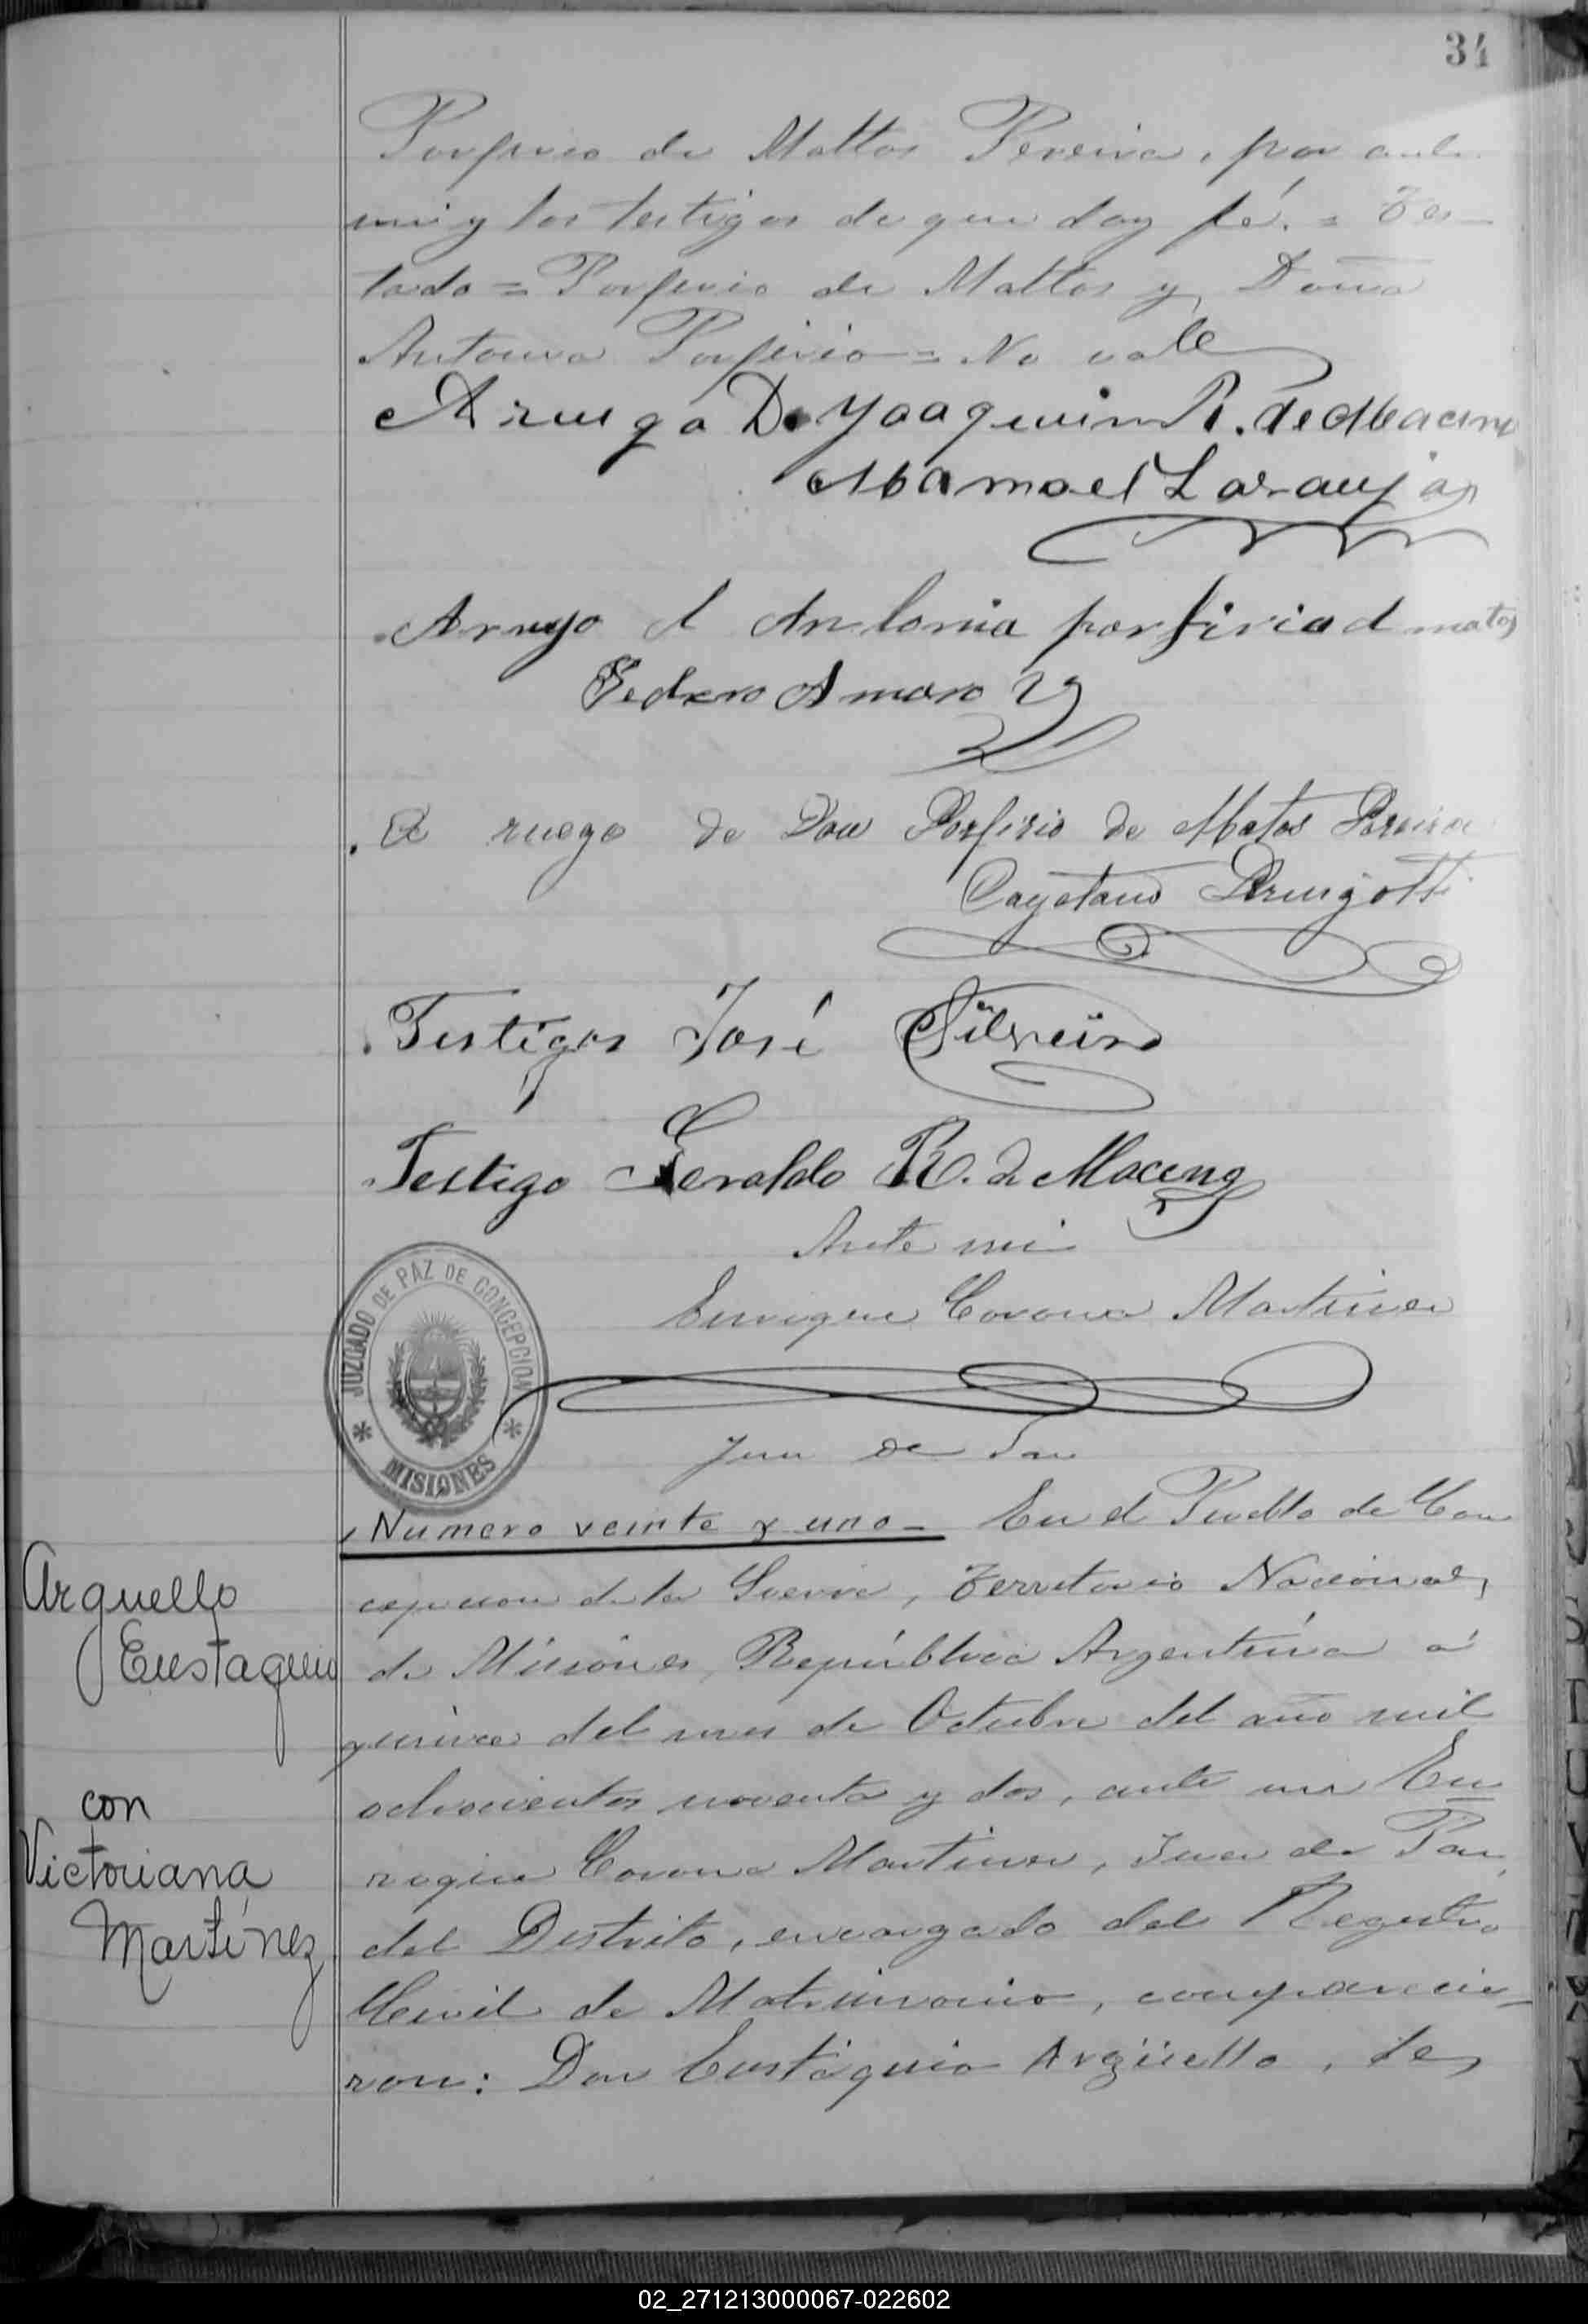 34
Porfirio de Mattos Pereira, por ante
mi y los testigos de que doy fé. = Tes-
tado = Porfirio de Mattos y Doña
Antonia Porfirio = No vale
Arruego D. Yoaquim R. de Macena
Mamoel Laranja
Arruyo d Antonia porfiria d matos
Pedro Amaro
A ruego de Don Porfirio de Matos Pereira
Cayetano
Testigos José Silveira
Testigo Geraldo R. de Macena
Ante mi
Enrique Corona Martinez
JUZGADO DE PAZ DE CONCEPCION
* MISIONES *
Juez de Paz
Numero veinte y uno - En el Pueblo de Con
cepcion de la Sierra, Territorio Nacional,
Arguello
Eustaquio
de Misiones, República Argentina á
quince del mes de Octubre del año mil
ochocientos noventa y dos, ante mi En
con
Victoriana
Martínez
rique Corona Martinez, Juez de Paz,
del Distrito, encargado del Registro
Civil de Matrimonio, comparecie-
ron: Don Eustaquio Argüello, de
02_271213000067-022602